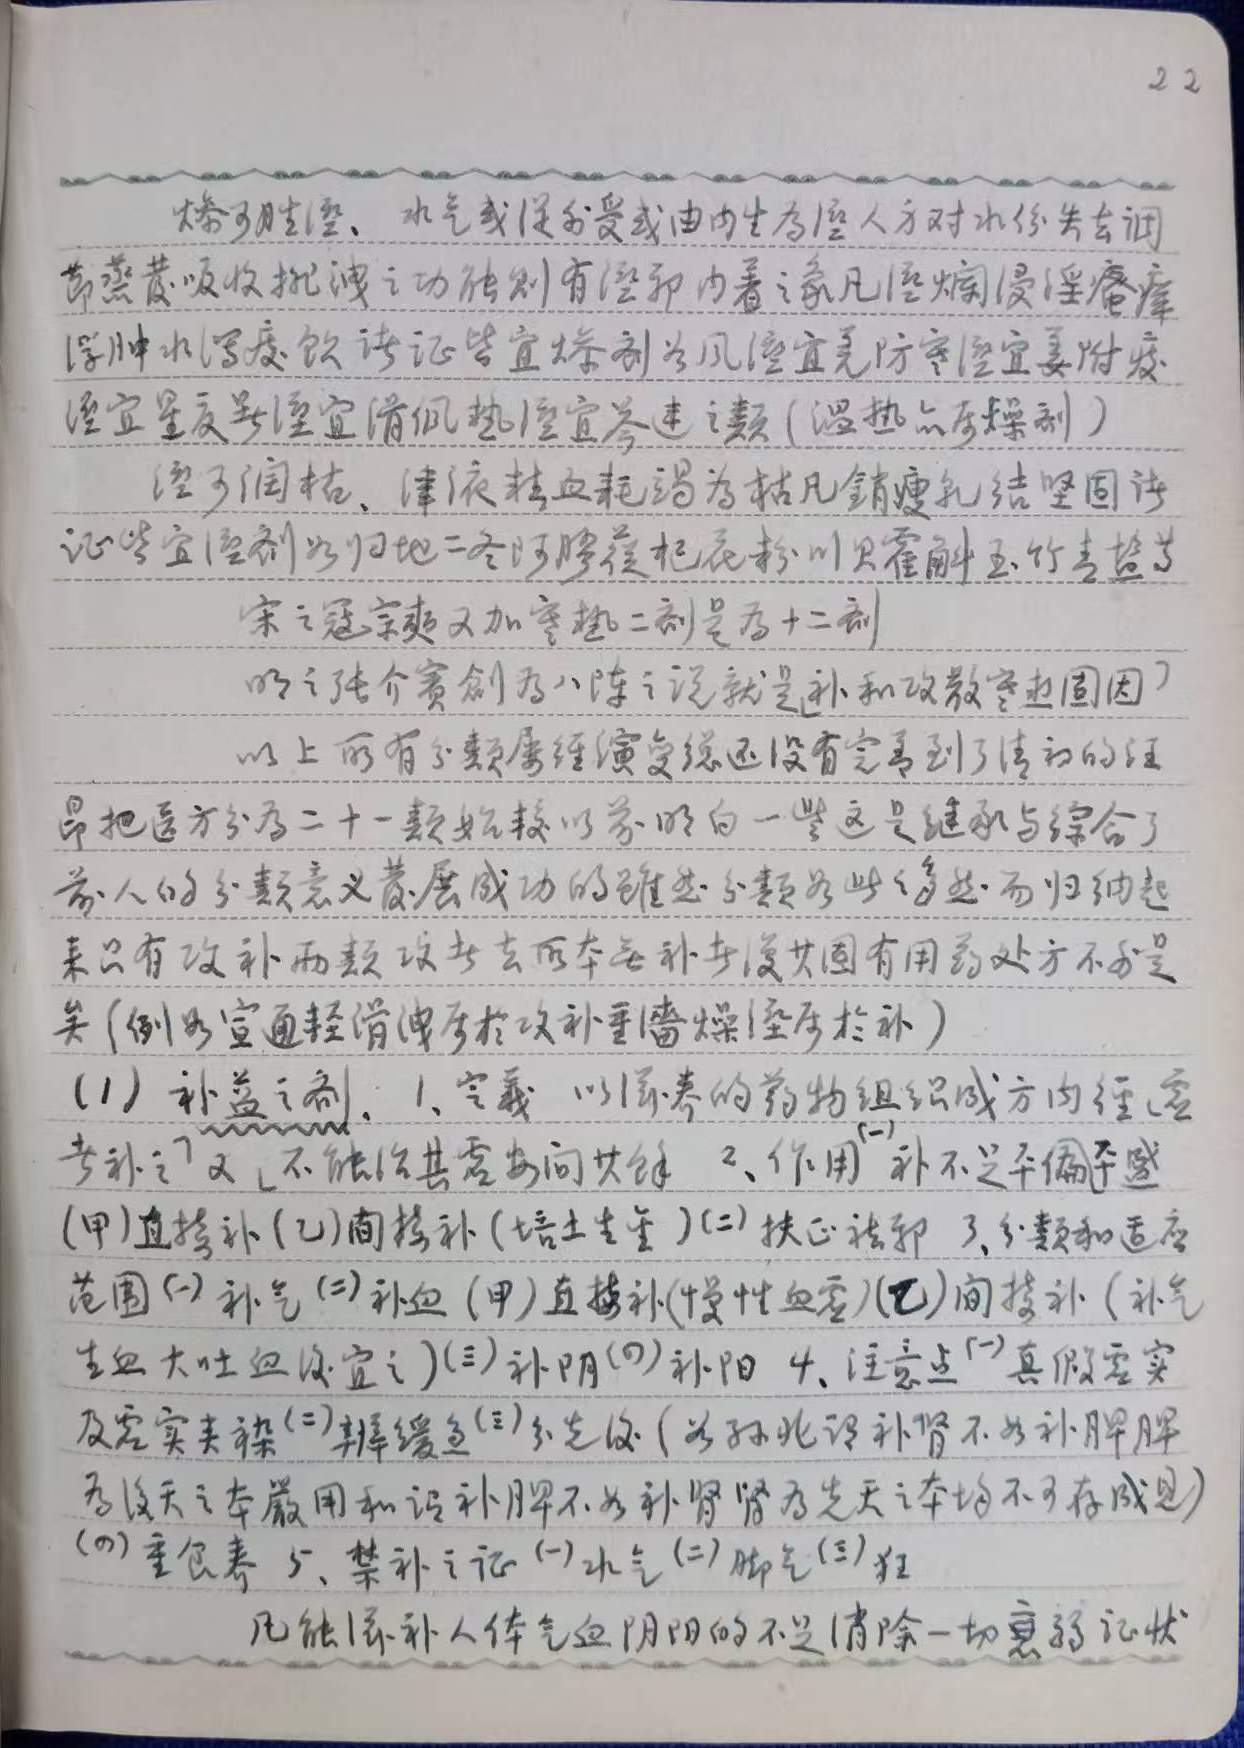 22
燥可胜溼、水气或从外受或由内生為溼人方对水份失去調
節蒸发吸收排洩之功能则有溼邪内着之象凡溼烂浸淫瘙痒
浮肿水泻痰飲诸证皆宜燥剂如风溼宜羌防寒溼宜姜附痰
溼宜星夏暑溼宜滑佩热溼宜芩連之類(温热亦屬燥剂)
溼可潤枯、津液精血耗竭為枯凡銷瘦乳结坚固诸
证皆宜溼剂如归地二冬阿膠蓯杞花粉川贝霍斛玉竹青盐等
宋之冦宗奭又加寒热二剂是為十二剂
明之张介賓創為八陣之说就是「补和攻散寒热固因」
以上所有分類屡经演变總还没有完善到了清初的汪
昂把医方分為二十一類始較以前明白一些这是继承与综合了
前人的分類意义发展成功的雖然分類如此多然而归纳起
来只有攻补两類攻者去所本無补者復其固有用药处方不外是
矣(例如宣通輕滑洩屬於攻补重濇燥溼屬於补)
(1)补益之剂、1、定義 以滋养的药物组织成方内经「虚
者补之」又「不能治其虚安问其餘 2、作用(一)补不足平偏盛
(甲)直接补(乙)间接补(培土生金)(二)扶正祛邪 3、分類和适应
范围(一)补气(二)补血(甲)直接补(慢性血虚)(乙)间接补(补气
生血大吐血後宜之)(三)补阴(四)补阳 4、注意点(一)真假虚实
及虚实夹杂(二)辨缓急(三)分先後(如孙兆谓补肾不如补脾脾
為後天之本嚴用和謂补脾不如补肾肾為先天之本均不可存成見)
(四)重食养 5、禁补之证(一)水气(二)脚气(三)狂
凡能滋补人体气血阴阳的不足消除一切衰弱证状